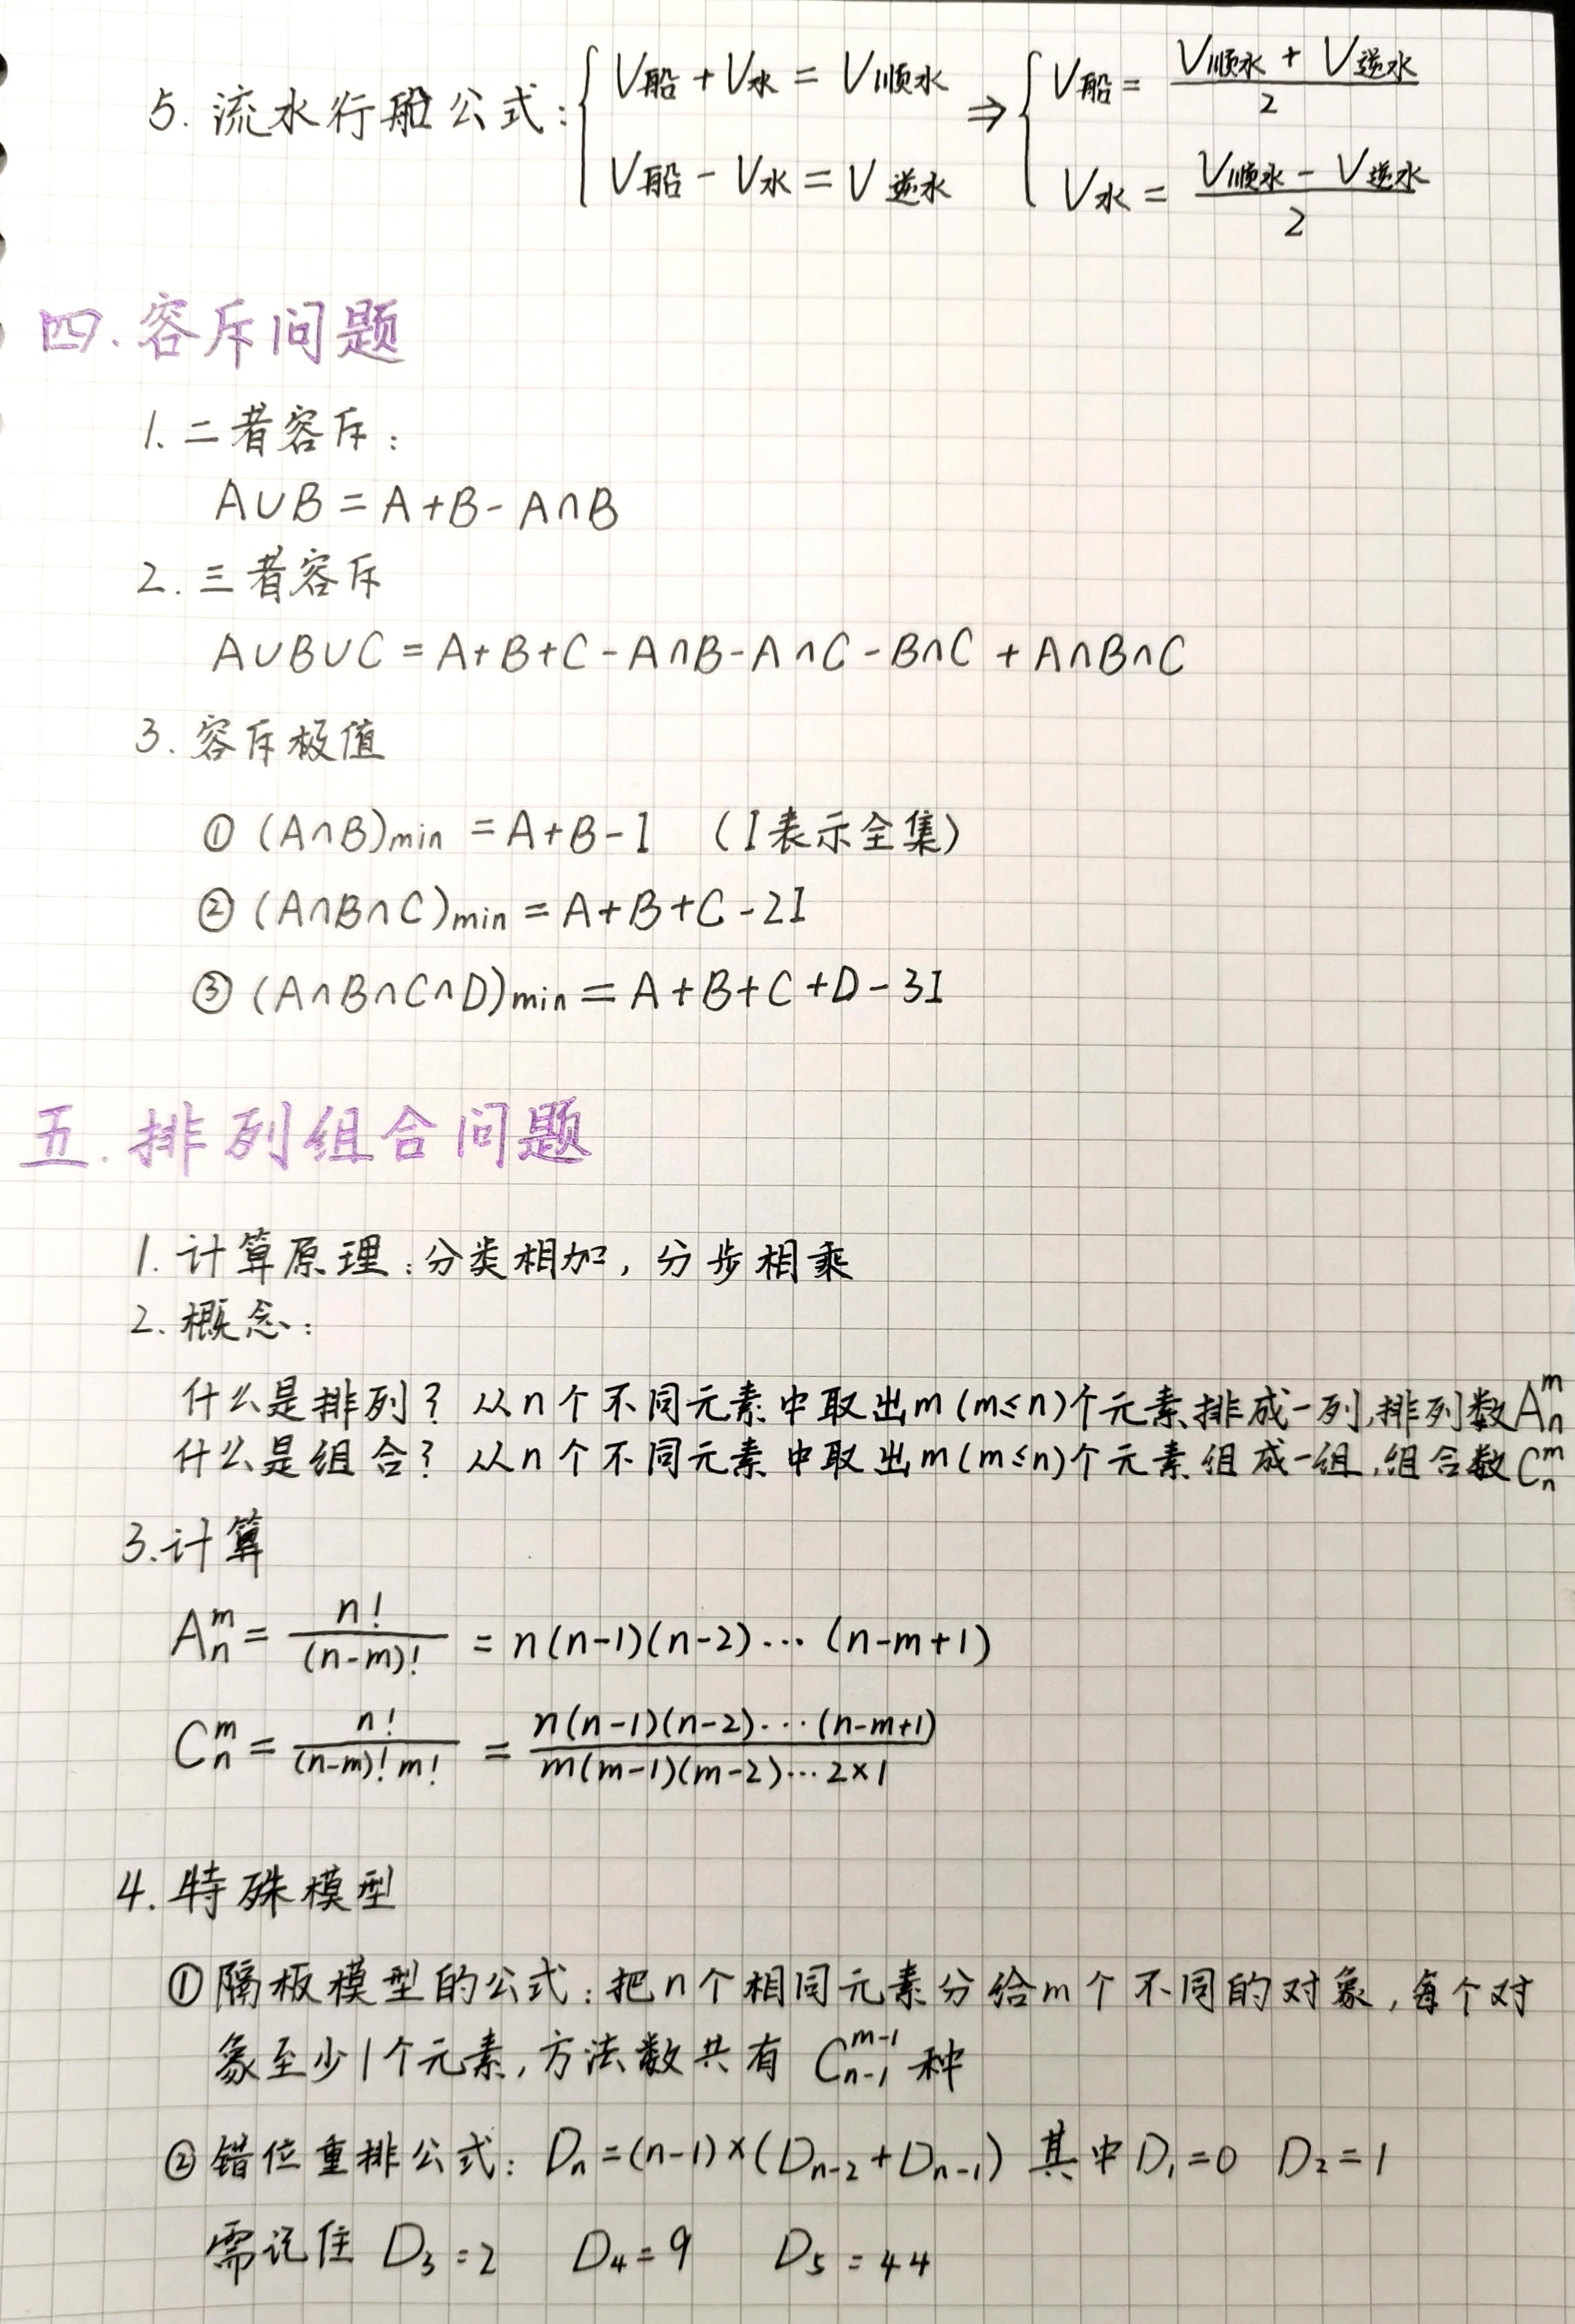 5. 流水行船公式: { V船 + V水 = V顺水 ⇒ { V船 = (V顺水 + V逆水)/2
V船 - V水 = V逆水 V水 = (V顺水 - V逆水)/2
四. 容斥问题
1. 二者容斥:
A∪B = A+B- A∩B
2. 三者容斥
A∪B∪C = A+B+C-A∩B-A∩C-B∩C+A∩B∩C
3. 容斥极值
① (A∩B)min = A+B-I (I表示全集)
② (A∩B∩C)min = A+B+C-2I
③ (A∩B∩C∩D)min = A+B+C+D-3I
五. 排列组合问题
1. 计算原理:分类相加, 分步相乘
2. 概念:
什么是排列? 从n个不同元素中取出m(m≤n)个元素排成一列,排列数Aₙᵐ
什么是组合? 从n个不同元素中取出m(m≤n)个元素组成一组,组合数Cₙᵐ
3.计算
Aₙᵐ = n!/(n-m)! = n(n-1)(n-2)···(n-m+1)
Cₙᵐ = n!/(n-m)!m! = n(n-1)(n-2)···(n-m+1)/m(m-1)(m-2)···2×1
4. 特殊模型
①隔板模型的公式:把n个相同元素分给m个不同的对象,每个对
象至少1个元素,方法数共有 Cₙ₋₁ᵐ⁻¹ 种
②错位重排公式: Dₙ=(n-1)×(Dₙ₋₂+Dₙ₋₁) 其中D₁=0 D₂=1
需记住 D₃=2 D₄=9 D₅=44